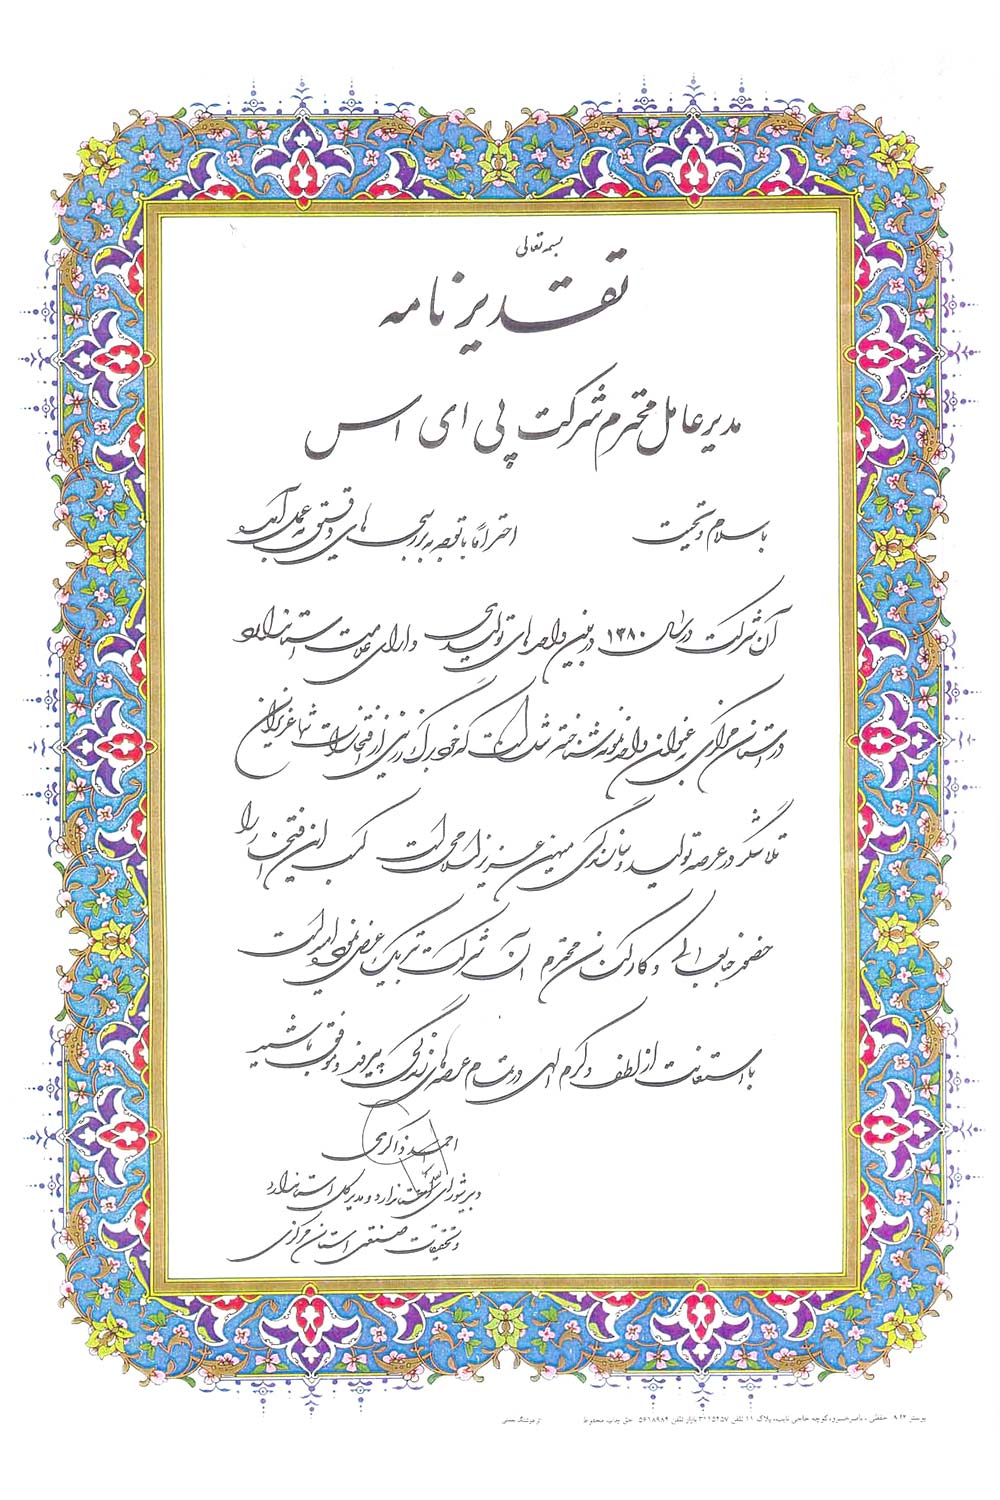 بسمه تعالی
تقدیرنامه
مدیرعامل محترم شرکت پی ای اس
با سلام و تحیت احتراماً با توجه به بررسی های دقیق به عمل آمده
آن شرکت در سال ۱۳۸۰ در بین واحدهای تولیدی و دارای علامت استاندارد
در استان مرکزی به عنوان واحد نمونه شناخته شده است که خود برگ زرینی از افتخارات شما عزیزان
تلاشگر در عرصه تولید و سازندگی میهن عزیز اسلامی است کسب این افتخار را
حضور جنابعالی و کارکنان محترم آن شرکت تبریک عرض نموده امید است
با استعانت از لطف و کرم الهی در تمام عرصه های زندگی پیروز و موفق باشید
احمد ذاکری
دبیر شورای استاندارد و مدیرکل استاندارد
و تحقیقات صنعتی استان مرکزی
پوستر ۸۴۲ حفظی، ناصرخسرو، کوچه حاجی نایب، پلاک ۱۱ تلفن ۳۱۱۵۴۵۷ بازار تلفن ۵۶۱۸۹۸۴ حق چاپ محفوظ